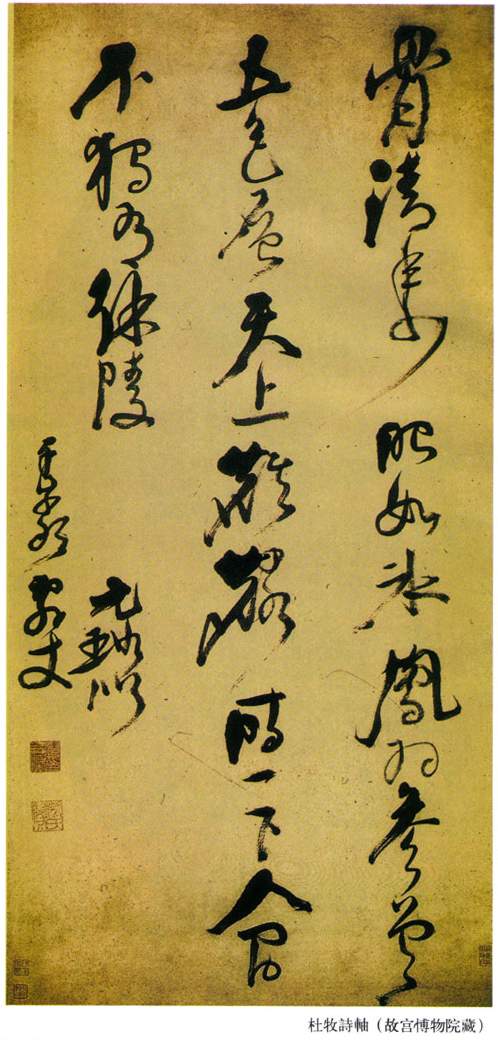 骨清年少眼如冰鳳羽參差
五色層天上麒麟時一下人間
不獨有徐陵
元璐似
家丈
杜牧詩軸（故宫博物院藏）